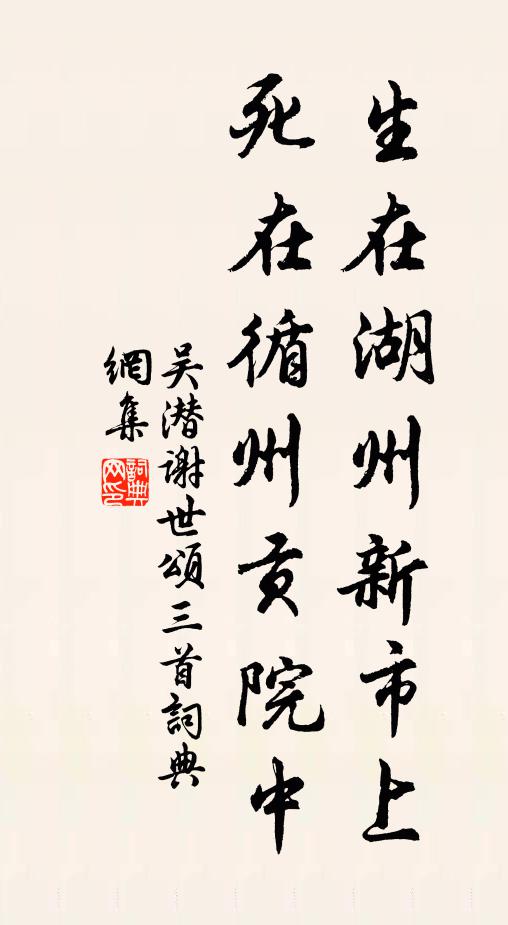 生在湖州新市上
死在循州贡院中
吴潜谢世頌三首詞典
網集
詞典網印